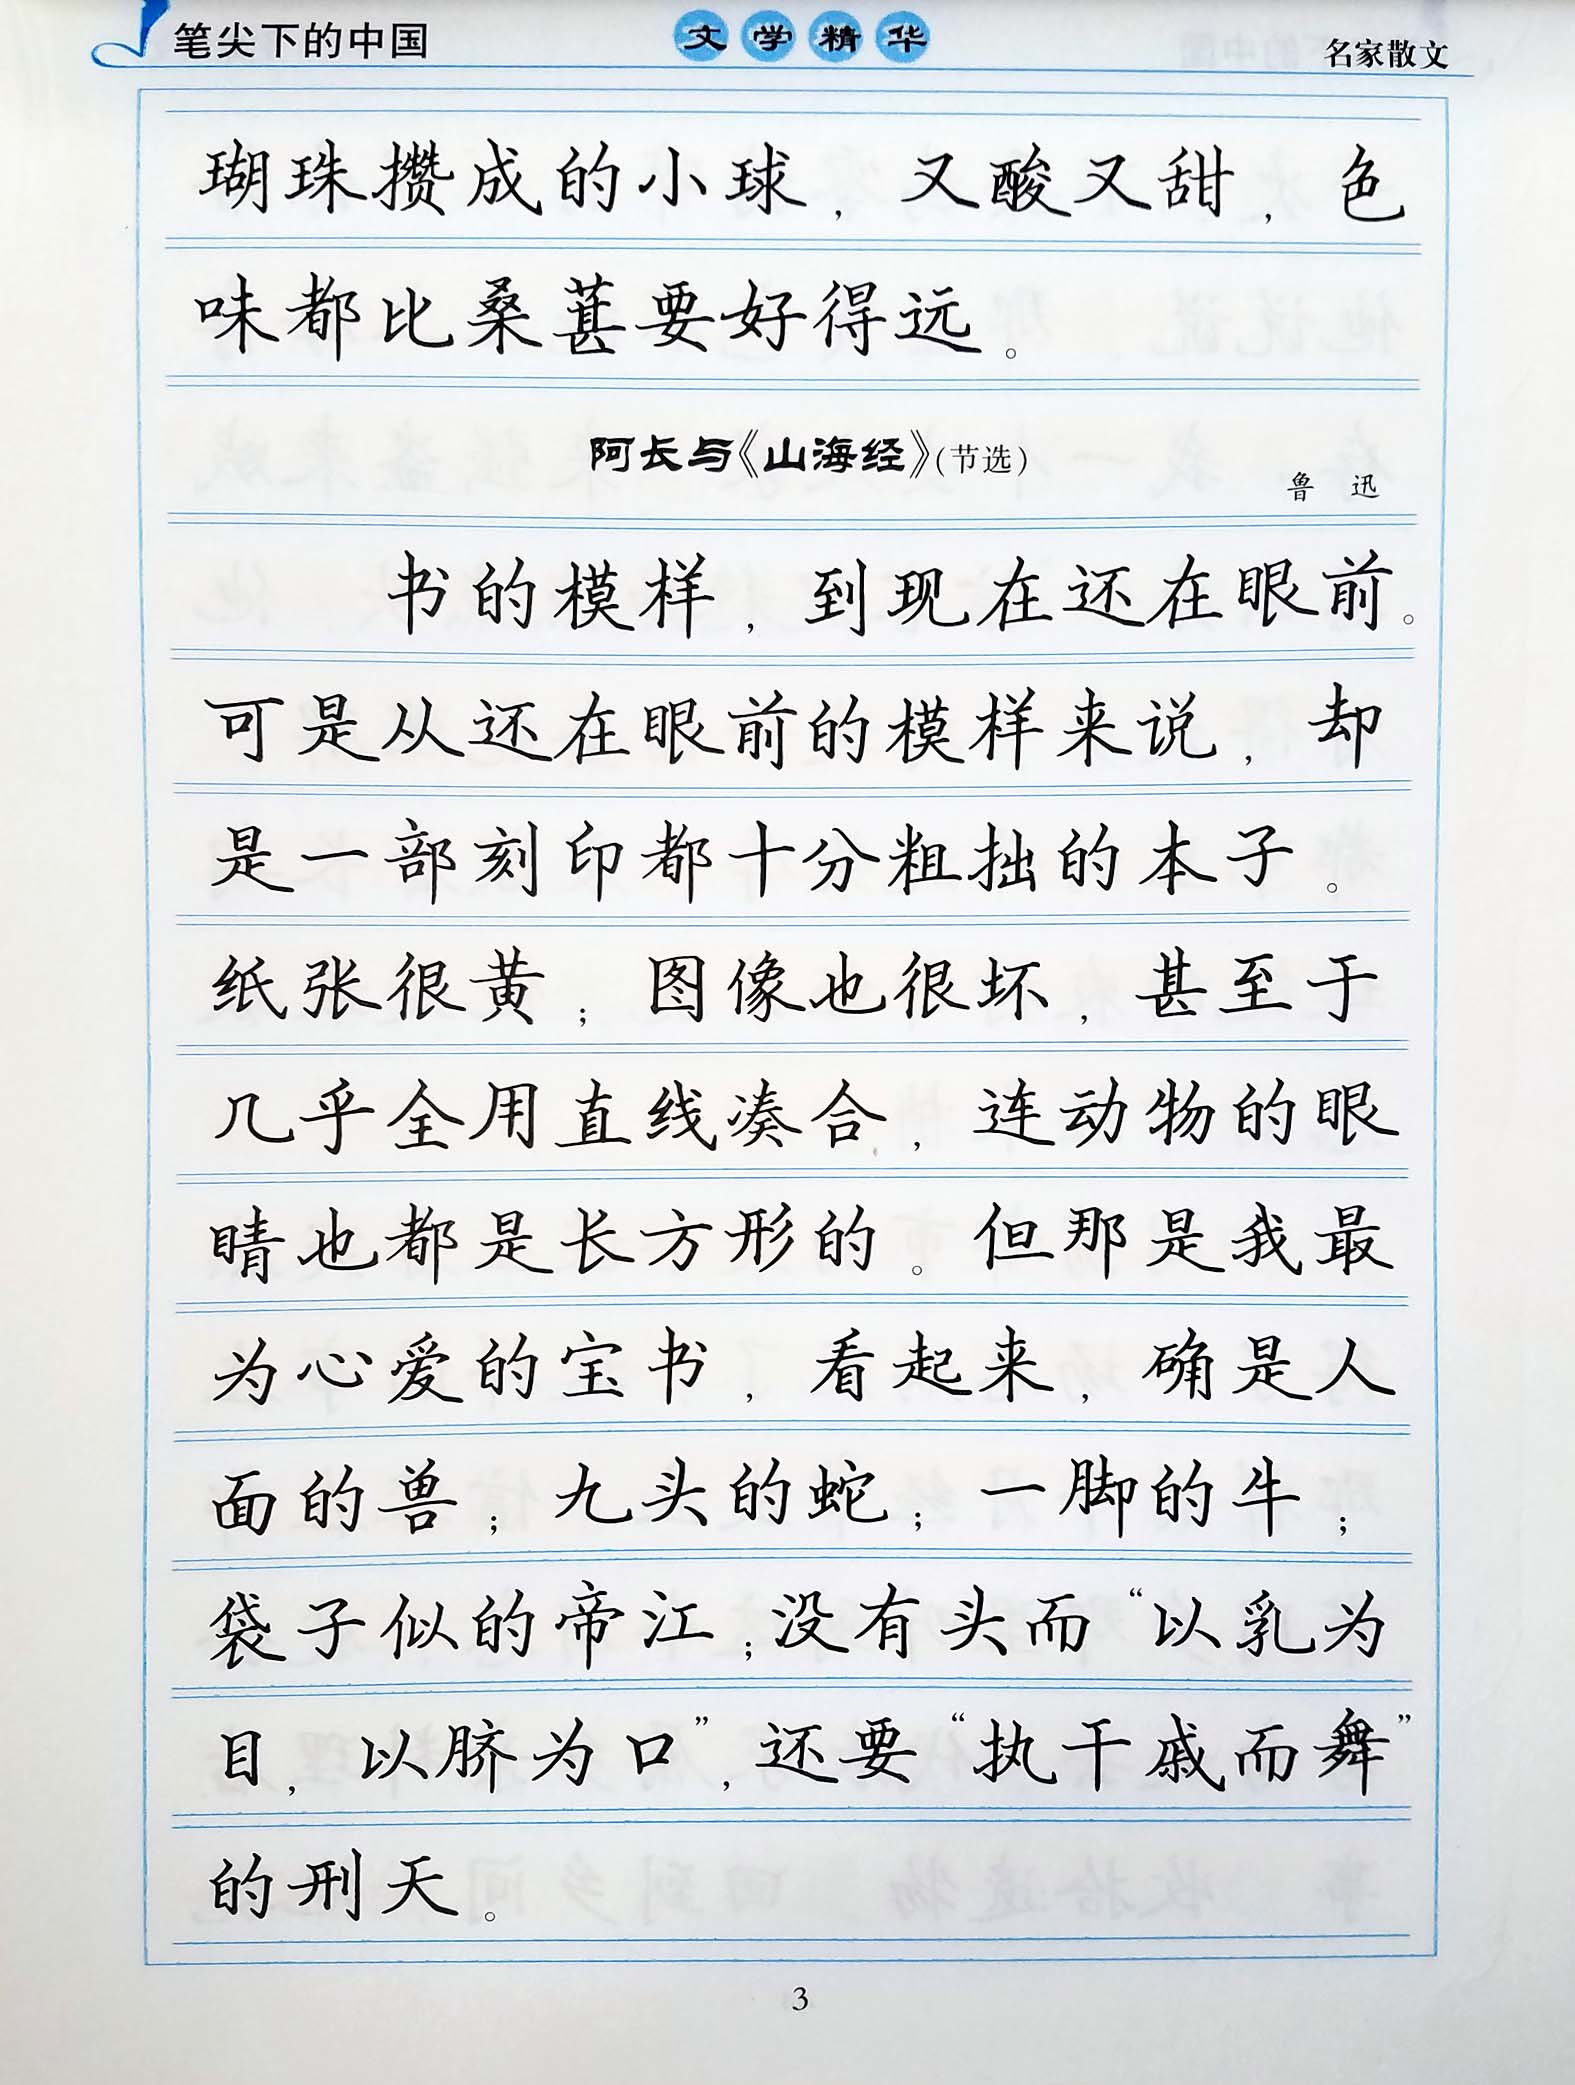 笔尖下的中国
文学精华
名家散文
瑚珠攒成的小球，又酸又甜，色
味都比桑葚要好得远。
阿长与《山海经》(节选)
鲁 迅
书的模样，到现在还在眼前。
可是从还在眼前的模样来说，却
是一部刻印都十分粗拙的本子。
纸张很黄；图像也很坏，甚至于
几乎全用直线凑合，连动物的眼
睛也都是长方形的。但那是我最
为心爱的宝书，看起来，确是人
面的兽；九头的蛇；一脚的牛；
袋子似的帝江；没有头而“以乳为
目，以脐为口”，还要“执干戚而舞”
的刑天。
3